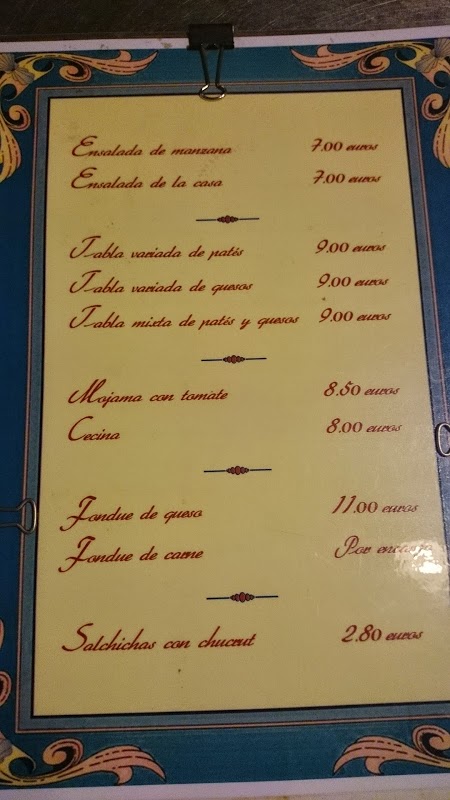 Ensalada de manzana 7.00 euros
Ensalada de la casa 7.00 euros
Tabla variada de patés 9.00 euros
Tabla variada de quesos 9.00 euros
Tabla mixta de patés y quesos 9.00 euros
Mojama con tomate 8.50 euros
Cecina 8.00 euros
Fondue de queso 11.00 euros
Fondue de carne Por
Salchichas con chucrut 2.80 euros